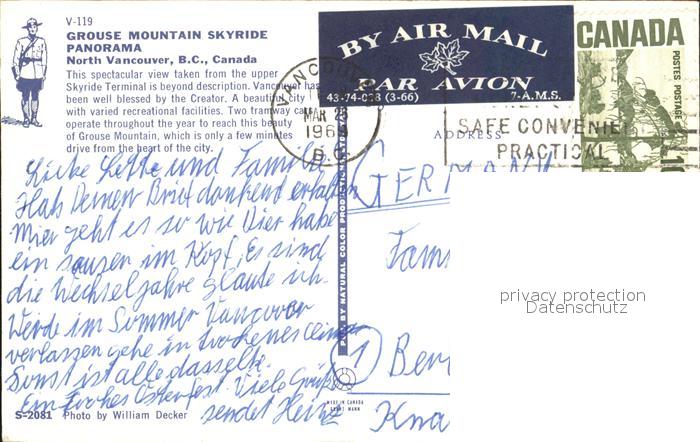 V-119
GROUSE MOUNTAIN SKYRIDE
PANORAMA
North Vancouver, B.C., Canada
This spectacular view taken from the upper
Skyride Terminal is beyond description. Vancouver has
been well blessed by the Creator. A beautiful city
with varied recreational facilities. Two tramway ca
operate throughout the year to reach this beauty
of Grouse Mountain, which is only a few minutes
drive from the heart of the city.
BY AIR MAIL
PAR AVION
43-74-038 (3-66) 7-A.M.S.
CANADA
POSTES POSTAGE
VANCOUVER
MAR
196
B.C.
SAFE CONVENIE
PRACTICAL
ADDRESS
Liebe Lotte und Familie.
Hab Deinen Brief dankend erhalten
Mier geht es so wie Dier habe
ein sausen im Kopf, Es sind
die Wechseljahre glaube ich.
Werde im Sommer Vancover
verlassen gehe in trockenes
Sonst ist alles dasselbe.
Ein Frohes Osterfest. Viele Grüße
sendet Heinz
GERMANY
Fam
1 Ber
Kna
PUB BY NATURAL COLOR PRODUCTIONS
MADE IN CANADA
GRANT MANN
S-2081 Photo by William Decker
privacy protection
Datenschutz